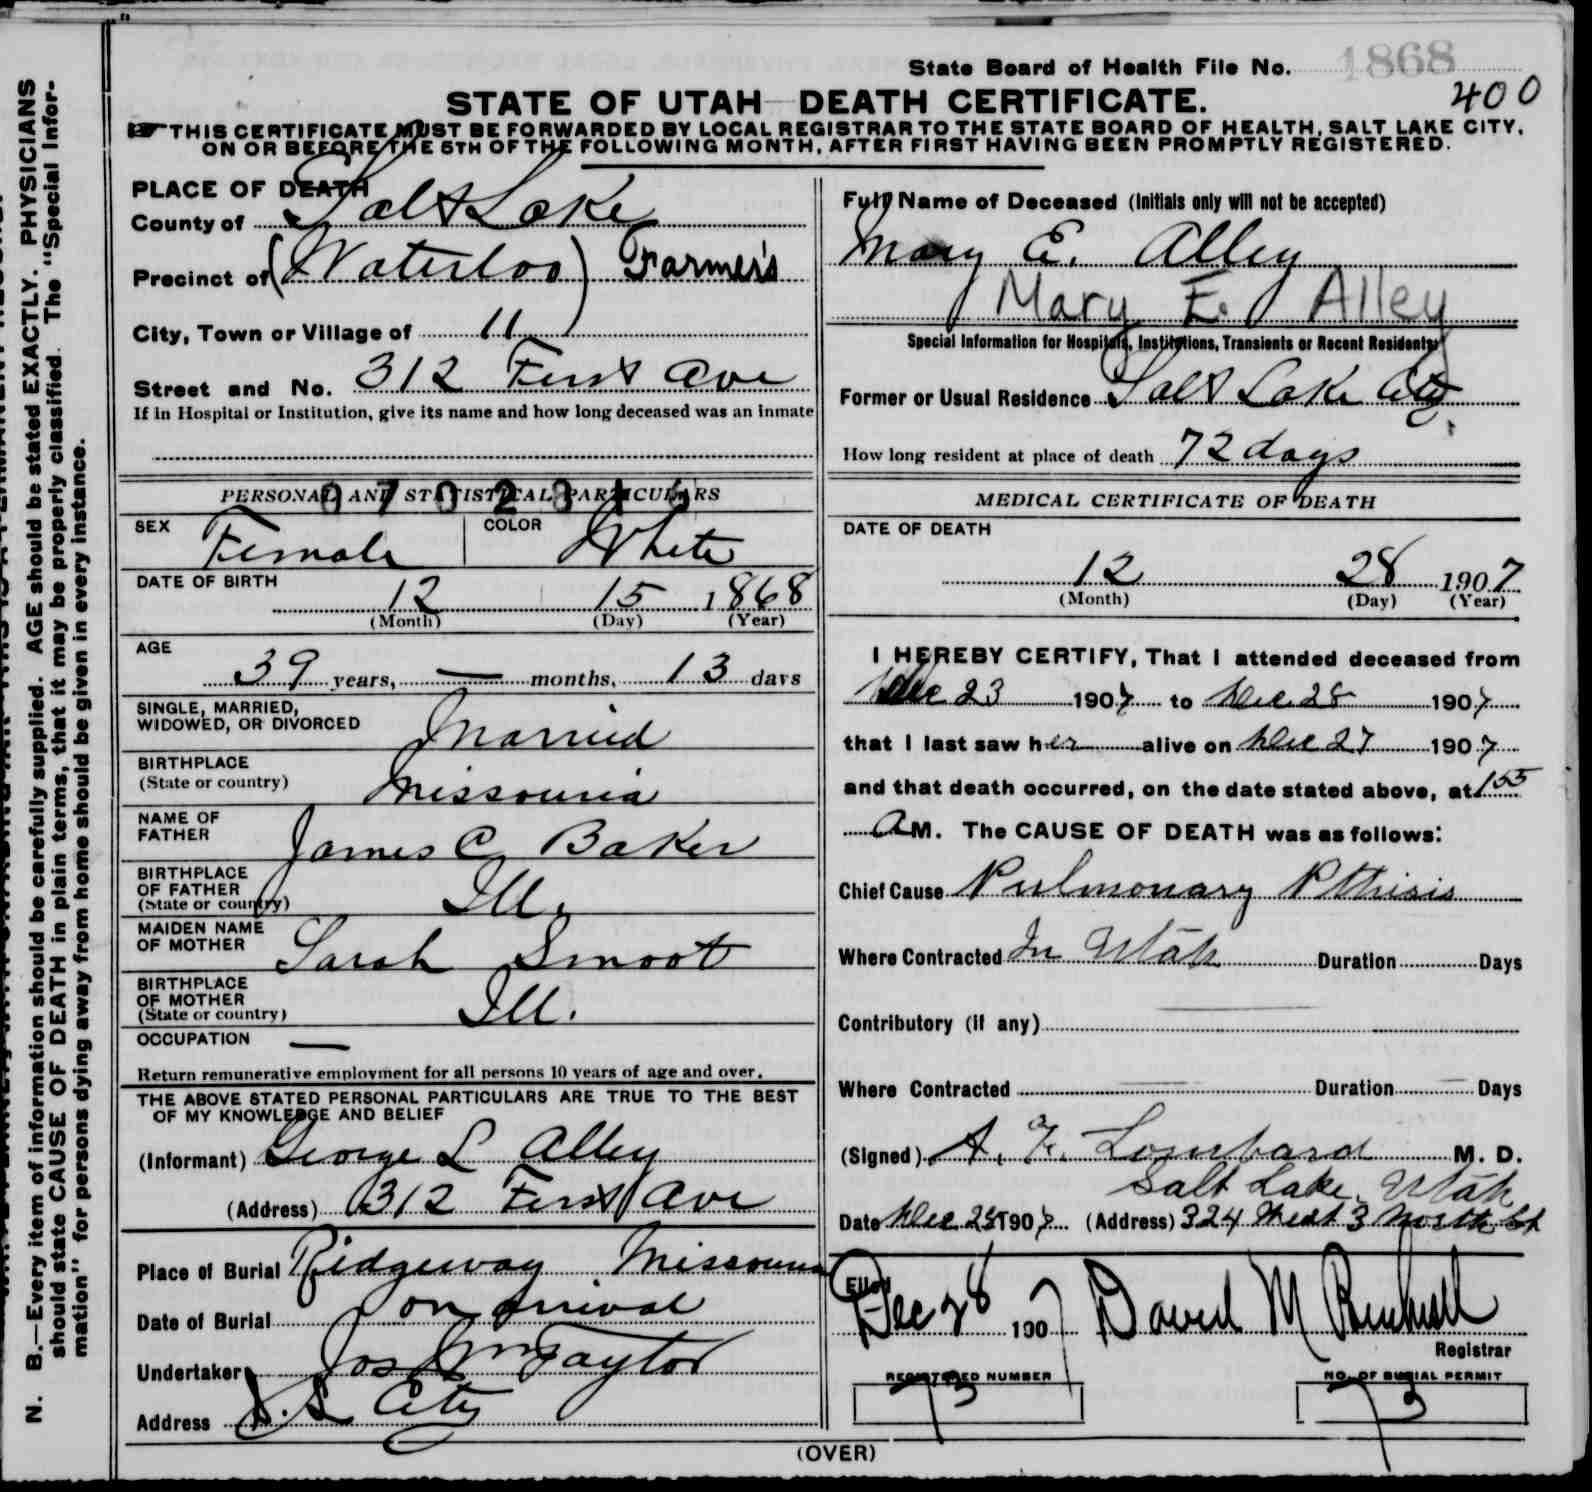 State Board of Health File No. 1868
400
STATE OF UTAH—DEATH CERTIFICATE.
THIS CERTIFICATE MUST BE FORWARDED BY LOCAL REGISTRAR TO THE STATE BOARD OF HEALTH, SALT LAKE CITY,
ON OR BEFORE THE 5TH OF THE FOLLOWING MONTH, AFTER FIRST HAVING BEEN PROMPTLY REGISTERED.
PLACE OF DEATH
County of Salt Lake
Precinct of (Waterloo) Farmer's
City, Town or Village of 11
Street and No. 312 First Ave
If in Hospital or Institution, give its name and how long deceased was an inmate
PERSONAL AND STATISTICAL PARTICULARS
SEX Female COLOR White
DATE OF BIRTH
12 15 1868
(Month) (Day) (Year)
AGE
39 years, — months, 13 days
SINGLE, MARRIED,
WIDOWED, OR DIVORCED Married
BIRTHPLACE
(State or country) Missouria
NAME OF
FATHER James C Baker
BIRTHPLACE
OF FATHER
(State or country) Ill.
MAIDEN NAME
OF MOTHER Sarah Smoot
BIRTHPLACE
OF MOTHER
(State or country) Ill.
OCCUPATION —
Return remunerative employment for all persons 10 years of age and over.
THE ABOVE STATED PERSONAL PARTICULARS ARE TRUE TO THE BEST
OF MY KNOWLEDGE AND BELIEF
(Informant) George L Alley
(Address) 312 First Ave
Place of Burial Ridgeway, Missouri
Date of Burial on arrival
Undertaker Jos Wm Taylor
Address S. L City
Full Name of Deceased (Initials only will not be accepted)
Mary E. Alley
Mary E. Alley
Special Information for Hospitals, Institutions, Transients or Recent Residents
Former or Usual Residence Salt Lake City
How long resident at place of death 72 days
MEDICAL CERTIFICATE OF DEATH
DATE OF DEATH
12 28 1907
(Month) (Day) (Year)
I HEREBY CERTIFY, That I attended deceased from
Dec 23 1907 to Dec 28 1907
that I last saw her alive on Dec 27 1907
and that death occurred, on the date stated above, at 155
A M. The CAUSE OF DEATH was as follows:
Chief Cause Pulmonary Pthisis
Where Contracted In Utah Duration Days
Contributory (if any)
Where Contracted Duration Days
(Signed) A. F. Lombard M. D.
Salt Lake, Utah
Date Dec 28 1907 (Address) 324 West 3 North St
Filed
Dec 28 1907 David M
Registrar
REGISTERED NUMBER
73
NO. OF BURIAL PERMIT
73
(OVER)
N. B.—Every item of information should be carefully supplied. AGE should be stated EXACTLY. PHYSICIANS
should state CAUSE OF DEATH in plain terms, that it may be properly classified. The "Special Infor-
mation" for persons dying away from home should be given in every instance.